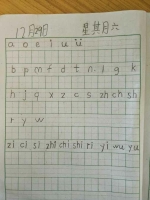 12月29日 星其月六
a o e i u ü
b p m f d t n l g k
h j q x z c s zh ch sh
r y w
zi ci si zhi chi shi ri yi wu yu